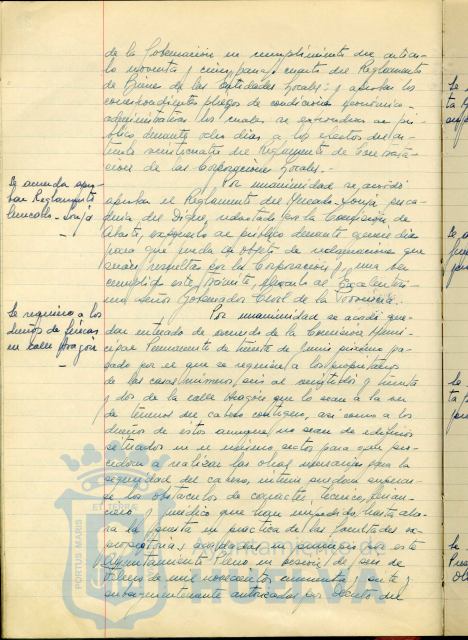 de la Gobernacion en cumplimiento del articu-
lo noventa y cinco, para cuarto del Reglamento
de Bienes de las Entidades Locales; y aprobar los
correspondientes pliegos de condiciones económico-
administrativas los cuales se expondran al pú-
blico durante ocho dias a los efectos del ar-
tículo veinticuatro del Reglamento de Contrata-
cion de las Corporaciones Locales.
Se acuerda apro-
bar Reglamento
Mercado-Lonja
Por unanimidad se acordó
aprobar el Reglamento del Mercado-Lonja pesca-
deria del Dique, redactado por la Comision de
Abasto, exponerlo al público durante quince dias
para que pueda ser objeto de reclamaciones que
serán resueltas por la Corporacion y, una vez
cumplido este trámite, elevarlo al Excelentísi-
mo Señor Gobernador Civil de la Provincia.
Se requiere a los
dueños de fincas
en calle Aragón
Por unanimidad se acordó que-
dar enterado de acuerdo de la Comision Muni-
cipal Permanente de treinta de Junio próximo pa-
sado por el que se requiere a los propietarios
de las casas números seis al veintidos y treinta
y dos de la calle Aragón que lo sean a la vez
de terrenos del cabezo contiguo, asi como a los
dueños de éstos aunque no sean de edificios
situados en el mismo sector para que pro-
cedan a realizar las obras necesarias para la
seguridad del cabezo, interin puedan superar-
se los obstaculos de caracter técnico, finan-
ciero y juridico que han impedido hasta aho-
ra la puesta en practica de las facultades ex-
propiatorias acordadas por este
Ayuntamiento Pleno en sesion de seis de
Febrero de mil novecientos cincuenta y siete y
subsiguientemente autorizadas por Decreto del
PORTUS MARIS
ET TERRÆ
Ayuntamiento de
HUELVA